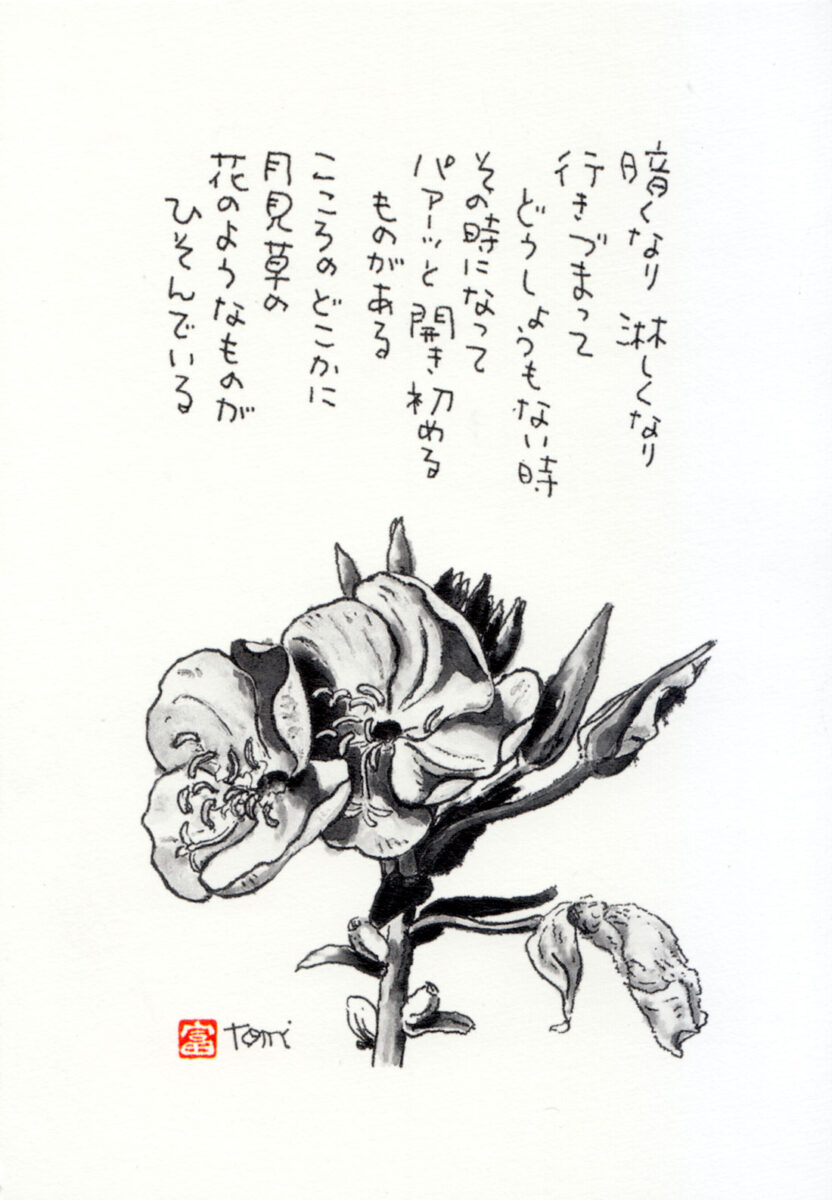 暗くなり 淋しくなり
行きづまって
どうしようもない時
その時になって
パアーッと 開き初める
ものがある
こころのどこかに
月見草の
花のようなものが
ひそんでいる
富 tomi